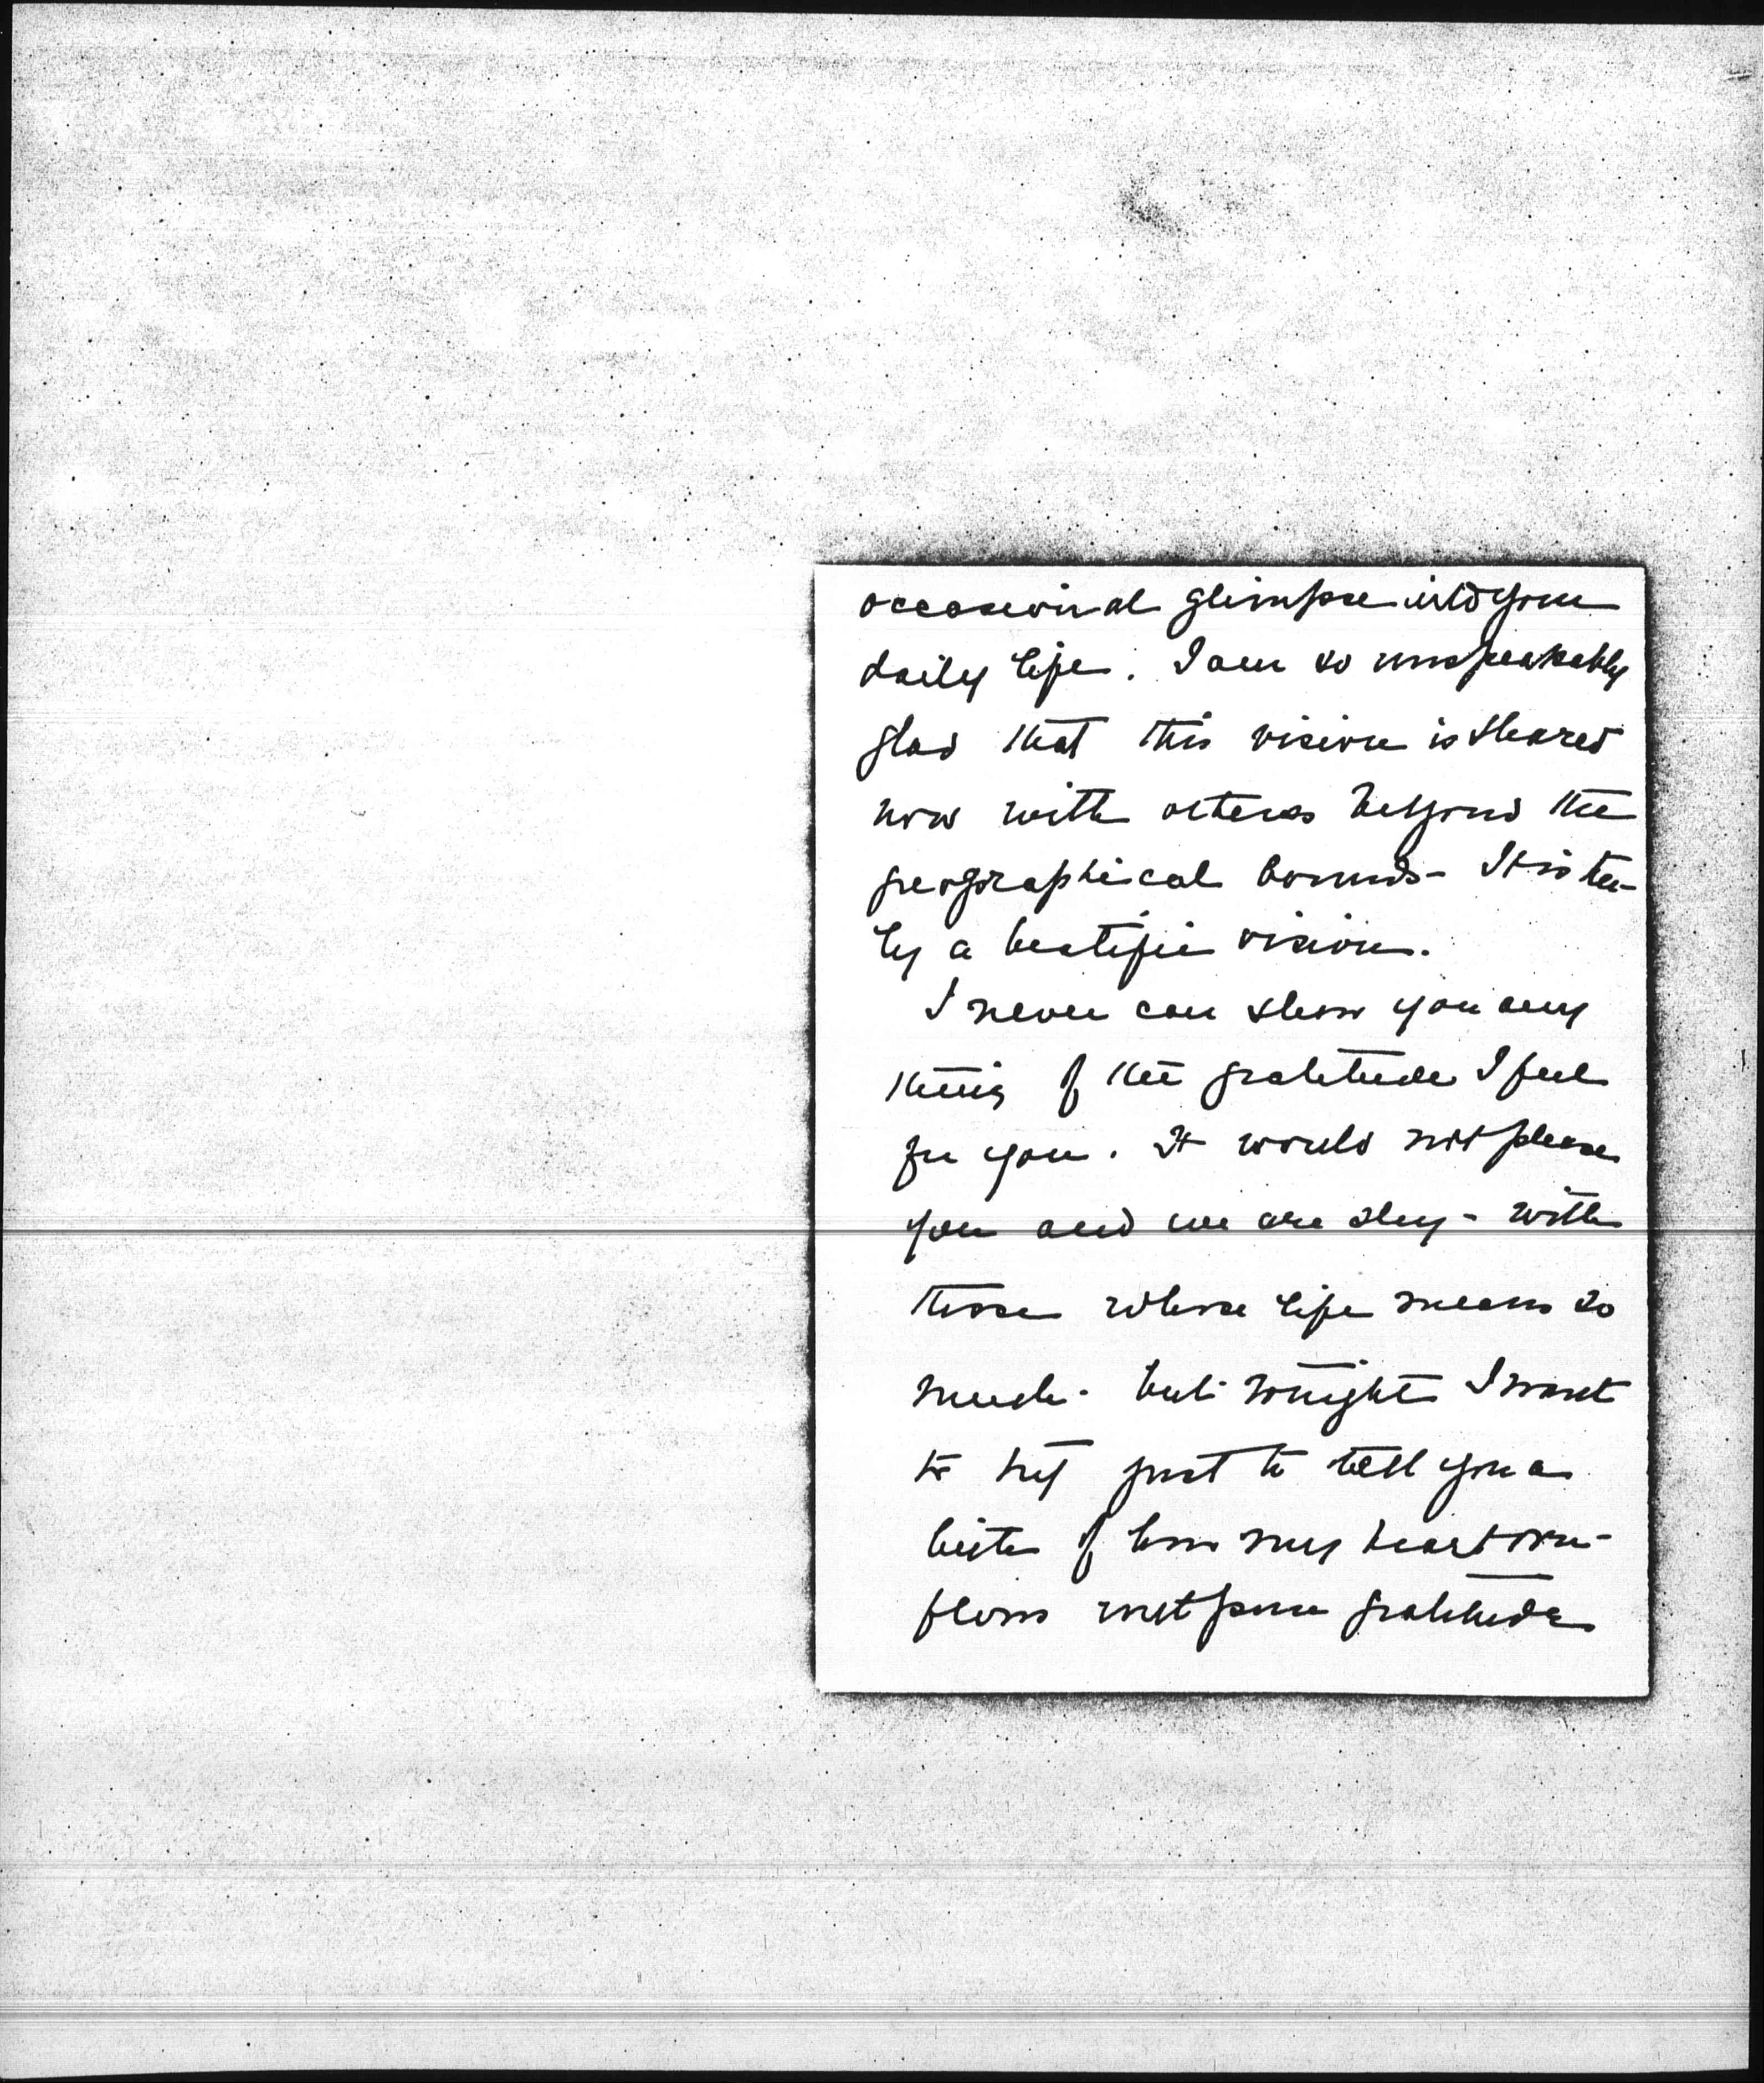 occasional glimpse into your
daily life. I am so unspeakably
glad that this vision is shared
now with others beyond the
geographical bounds - It is tru-
ly a beatific vision.
I never can show you any
thing of the gratitude I feel
for you. It would not please
you and we are shy - with
those whose life means so
much - but tonight I want
to try just to tell you a
little of how my heart over-
flows with pure gratitude